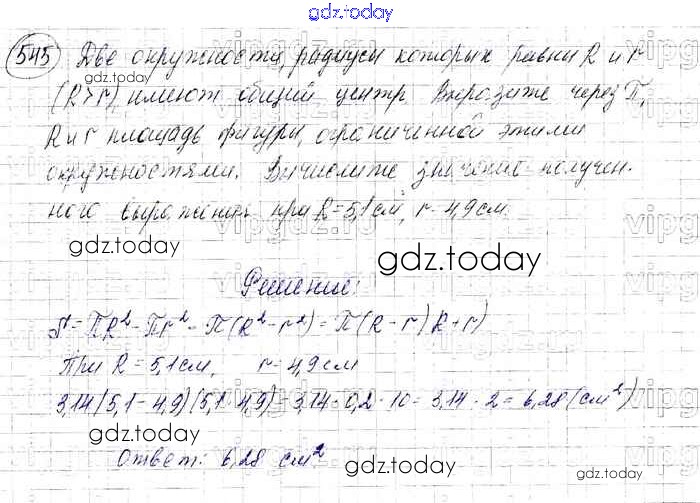 gdz.today
545 Две окружности, радиусы которых равны R и r
(R>r) имеют общий центр. Выразите через П,
R и r площадь фигуры, ограниченной этими
окружностями. Вычислите значение получен-
ного выражения при R=5,1см, r=4,9см.
gdz.today
gdz.today
Решение:
S = ПR² - Пr² = П(R² - r²) = П(R - r)(R + r)
При R = 5,1см, r = 4,9см
3,14(5,1 - 4,9)(5,1+4,9) = 3,14 · 0,2 · 10 = 3,14 · 2 = 6,28 (см²)
gdz.today
Ответ: 6,28 см²
gdz.today
gdz.today